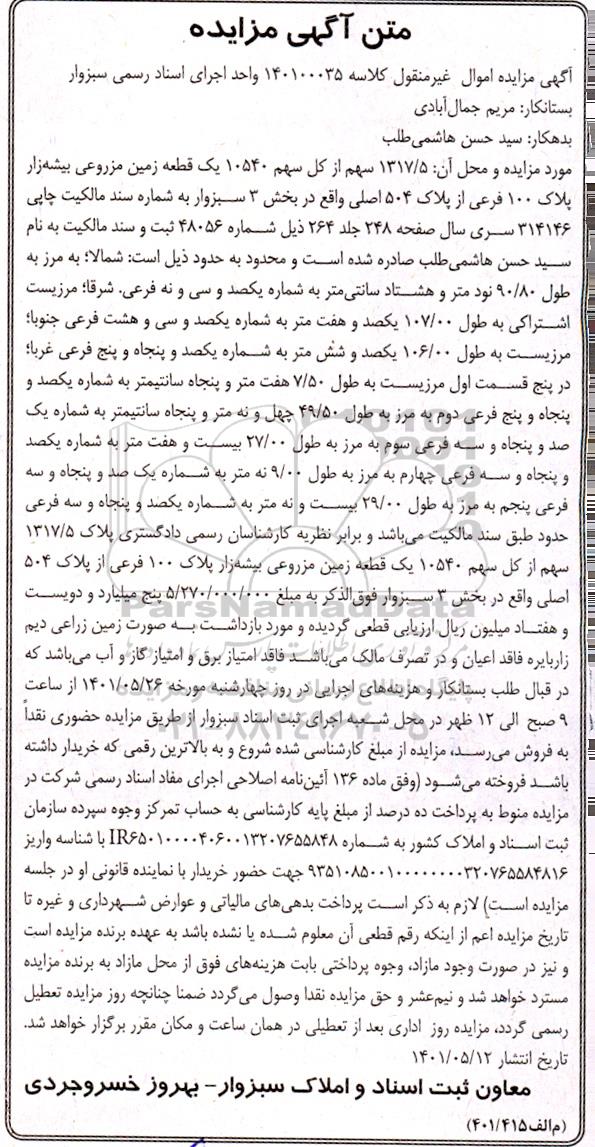 متن آگهی مزایده
آگهی مزایده اموال غیرمنقول کلاسه ۱۴۰۱۰۰۰۳۵ واحد اجرای اسناد رسمی سبزوار
بستانکار: مریم جمال‌آبادی
بدهکار: سید حسن هاشمی‌طلب
مورد مزایده و محل آن: ۱۳۱۷/۵ سهم از کل سهم ۱۰۵۴۰ یک قطعه زمین مزروعی بیشه‌زار
پلاک ۱۰۰ فرعی از پلاک ۵۰۴ اصلی واقع در بخش ۳ سبزوار به شماره سند مالکیت چاپی
۳۱۴۱۴۶ سری سال صفحه ۲۴۸ جلد ۲۶۴ ذیل شماره ۴۸۰۵۶ ثبت و سند مالکیت به نام
سید حسن هاشمی‌طلب صادره شده است و محدود به حدود ذیل است: شمالا؛ به مرز به
طول ۹۰/۸۰ نود متر و هشتاد سانتی‌متر به شماره یکصد و سی و نه فرعی. شرقا؛ مرزیست
اشتراکی به طول ۱۰۷/۰۰ یکصد و هفت متر به شماره یکصد و سی و هشت فرعی جنوبا؛
مرزیست به طول ۱۰۶/۰۰ یکصد و شش متر به شماره یکصد و پنجاه و پنج فرعی غربا؛
در پنج قسمت اول مرزیست به طول ۷/۵۰ هفت متر و پنجاه سانتیمتر به شماره یکصد و
پنجاه و پنج فرعی دوم به مرز به طول ۴۹/۵۰ چهل و نه متر و پنجاه سانتیمتر به شماره یک
صد و پنجاه و سه فرعی سوم به مرز به طول ۲۷/۰۰ بیست و هفت متر به شماره یکصد
و پنجاه و سه فرعی چهارم به مرز به طول ۹/۰۰ نه متر به شماره یک صد و پنجاه و سه
فرعی پنجم به مرز به طول ۲۹/۰۰ بیست و نه متر به شماره یکصد و پنجاه و سه فرعی
حدود طبق سند مالکیت می‌باشد و برابر نظریه کارشناسان رسمی دادگستری پلاک ۱۳۱۷/۵
سهم از کل سهم ۱۰۵۴۰ یک قطعه زمین مزروعی بیشه‌زار پلاک ۱۰۰ فرعی از پلاک ۵۰۴
اصلی واقع در بخش ۳ سبزوار فوق‌الذکر به مبلغ ۵/۲۷۰/۰۰۰/۰۰۰ پنج میلیارد و دویست
و هفتاد میلیون ریال ارزیابی قطعی گردیده و مورد بازداشت به صورت زمین زراعی دیم
زاربایره فاقد اعیان و در تصرف مالک می‌باشد فاقد امتیاز برق و امتیاز گاز و آب می‌باشد که
در قبال طلب بستانکار و هزینه‌های اجرایی در روز چهارشنبه مورخه ۱۴۰۱/۰۵/۲۶ از ساعت
۹ صبح الی ۱۲ ظهر در محل شعبه اجرای ثبت اسناد سبزوار از طریق مزایده حضوری نقداً
به فروش می‌رسد، مزایده از مبلغ کارشناسی شده شروع و به بالاترین رقمی که خریدار داشته
باشد فروخته می‌شود (وفق ماده ۱۳۶ آئین‌نامه اصلاحی اجرای مفاد اسناد رسمی شرکت در
مزایده منوط به پرداخت ده درصد از مبلغ پایه کارشناسی به حساب تمرکز وجوه سپرده سازمان
ثبت اسناد و املاک کشور به شماره IR۶۵۰۱۰۰۰۰۴۰۶۰۰۱۳۲۰۷۶۵۵۸۴۸ با شناسه واریز
۹۳۵۱۰۸۵۰۰۱۰۰۰۰۰۰۰۰۰۳۲۰۷۶۵۵۸۴۸۱۶ جهت حضور خریدار با نماینده قانونی او در جلسه
مزایده است) لازم به ذکر است پرداخت بدهی‌های مالیاتی و عوارض شهرداری و غیره تا
تاریخ مزایده اعم از اینکه رقم قطعی آن معلوم شده یا نشده باشد به عهده برنده مزایده است
و نیز در صورت وجود مازاد، وجوه پرداختی بابت هزینه‌های فوق از محل مازاد به برنده مزایده
مسترد خواهد شد و نیم‌عشر و حق مزایده نقدا وصول می‌گردد ضمنا چنانچه روز مزایده تعطیل
رسمی گردد، مزایده روز اداری بعد از تعطیلی در همان ساعت و مکان مقرر برگزار خواهد شد.
تاریخ انتشار ۱۴۰۱/۰۵/۱۲
معاون ثبت اسناد و املاک سبزوار- بهروز خسروجردی
(م‌الف۴۰۱/۴۱۵)
ParsNamadData